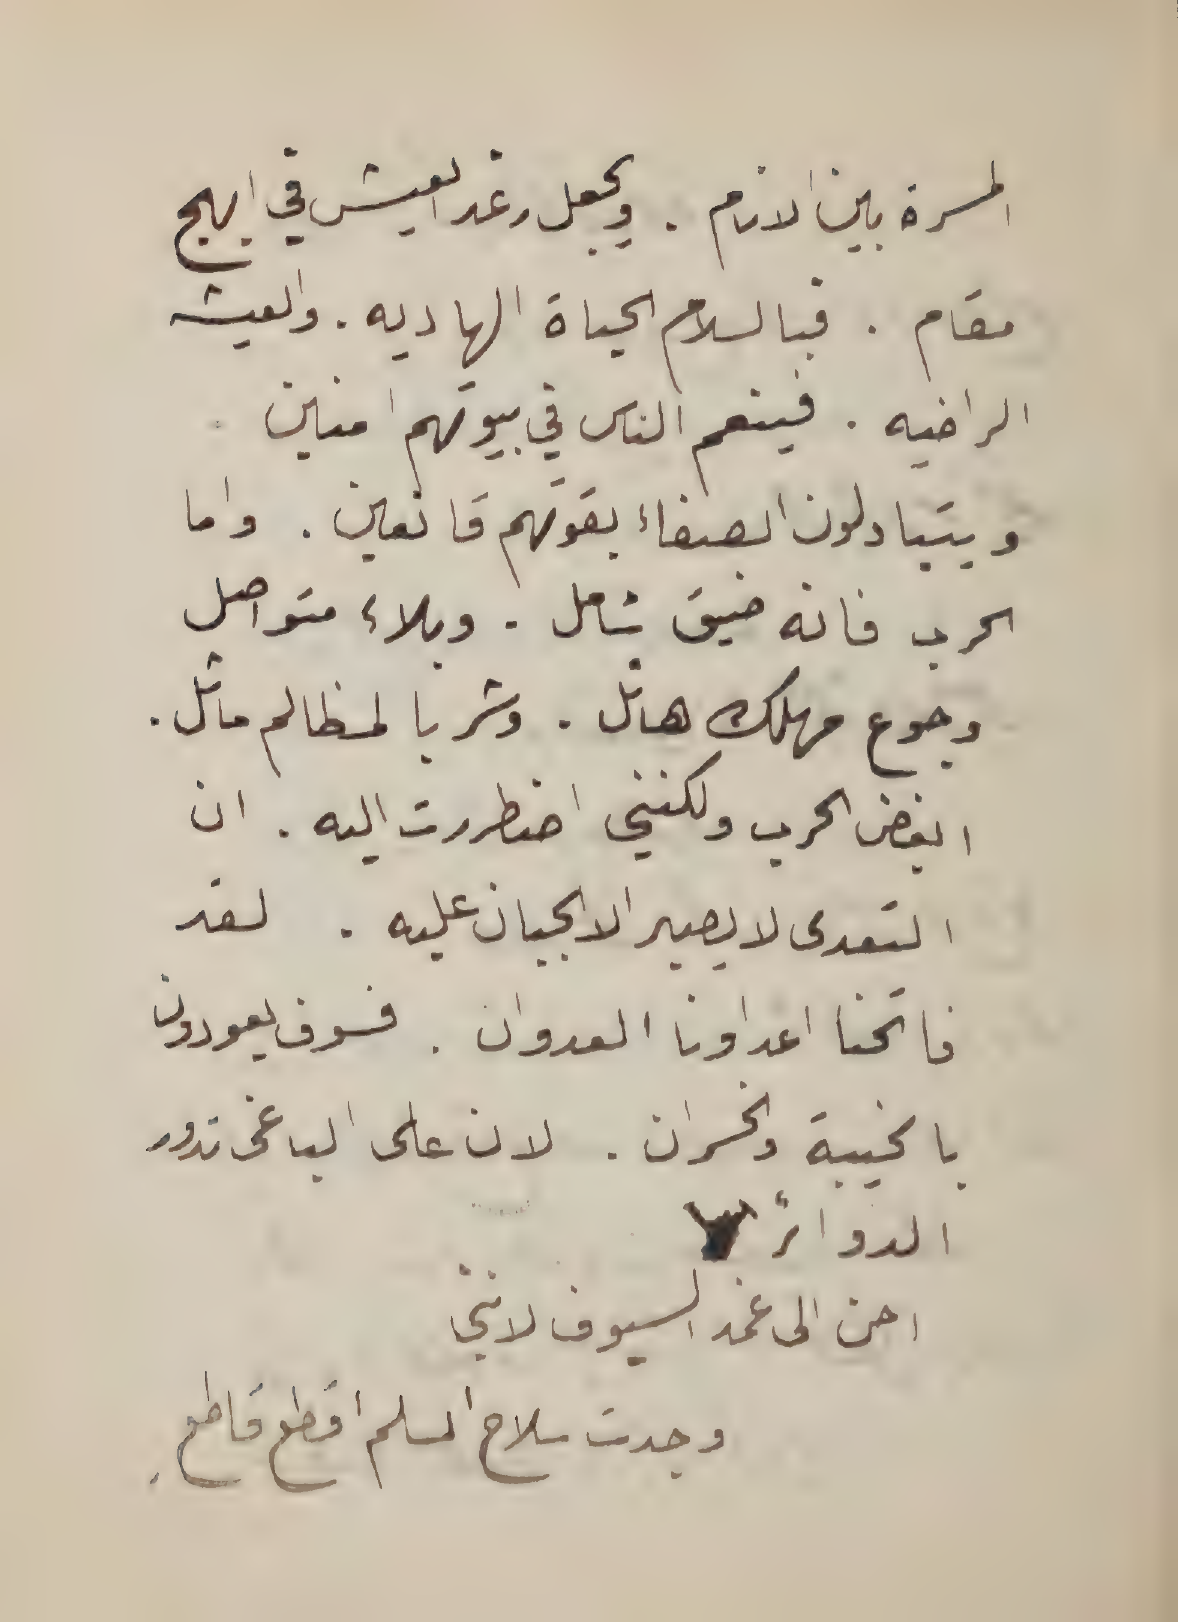 المسرة بين الانام . ويجعل رغد العيش في ابهج
مقام . فبالسلام الحياة الهاديه . والعيشه
الراضيه . فينعم الناس في بيوتهم امنين .
ويتبادلون الصفاء بقوتهم قانعين . واما
الحرب فانه ضيق شامل . وبلاء متواصل
وجوع مهلك هائل . وشر بالمظالم ماثل .
ابغض الحرب ولكنني اضطررت اليه . ان
التعدى لا يصبر الا الجبان عليه . لقد
فاتحنا اعداونا العدوان . فسوف يعودون
بالخيبة والخسران . لان على الباغى تدور
الدوائر
احن الى غمد السيوف لانني
وجدت سلاح السلم اقطع قاطع .